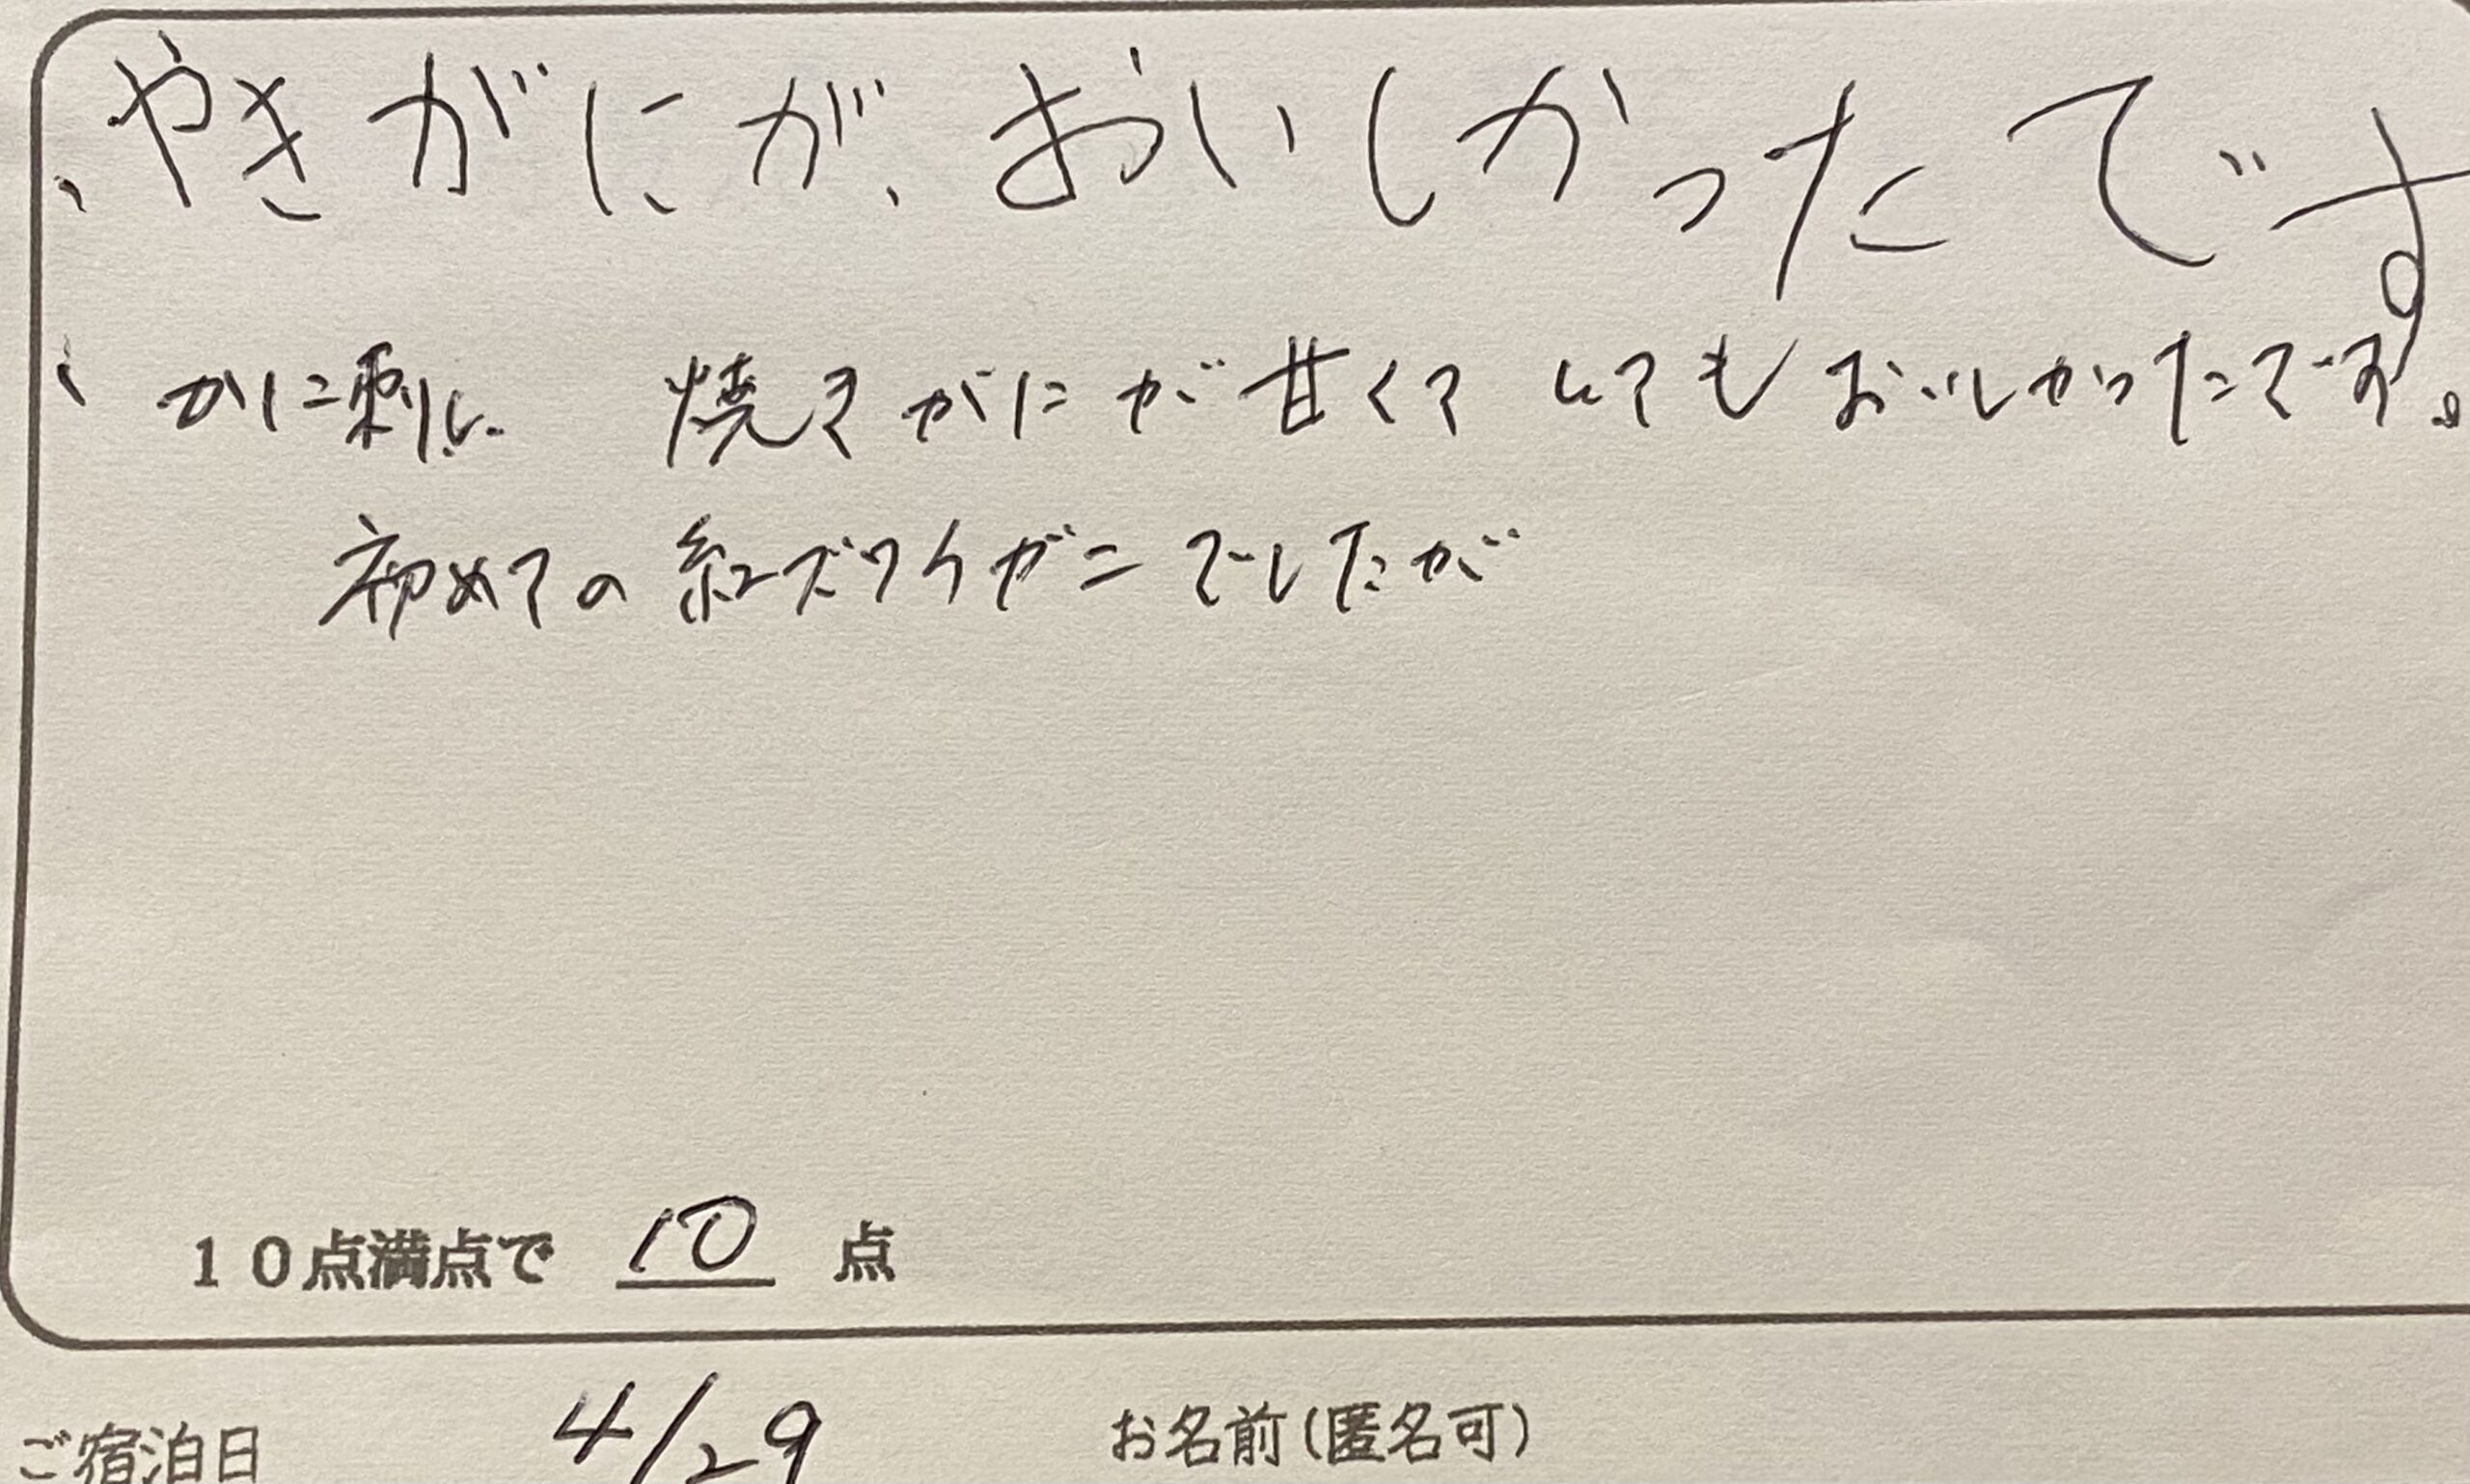 、やきがにが、おいしかったです
、かに刺し 焼きがにが甘くて とても おいしかったです。
初めての 紅ズワイガニ でしたが
10点満点で 10 点
ご宿泊日 4/29 お名前(匿名可)